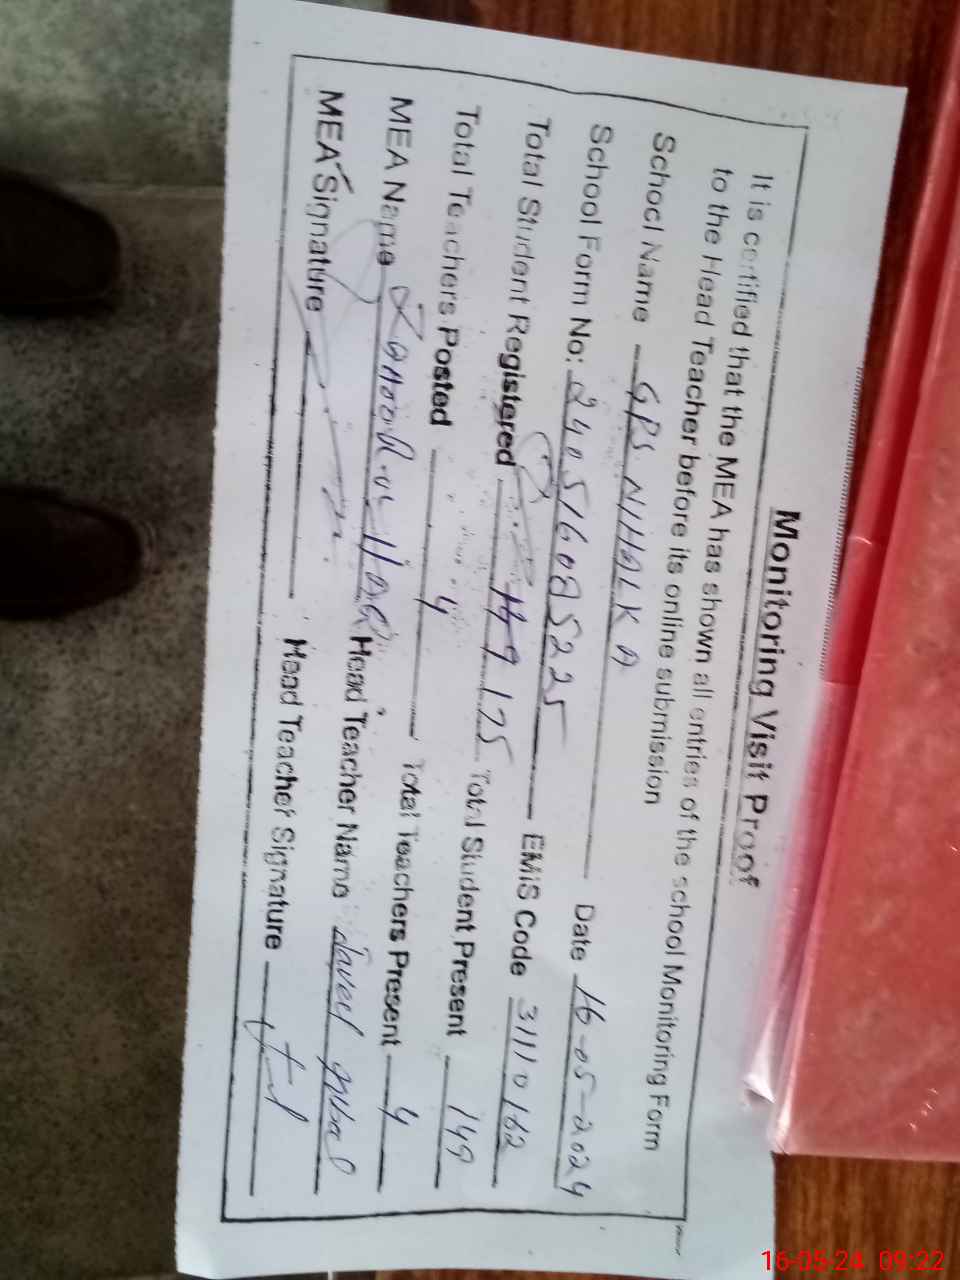 Monitoring Visit Proof
It is certified that the MEA has shown all entries of the school Monitoring Form
to the Head Teacher before its online submission
School Name GPS NIHALKA Date 16-05-2024
School Form No: 240516085225 EMIS Code 31110162
Total Student Registered 175 Total Student Present 149
Total Teachers Posted 4 Total Teachers Present 4
MEA Name Head Teacher Name Javed Iqbal
MEA Signature Head Teacher Signature
16-05-24 09:22